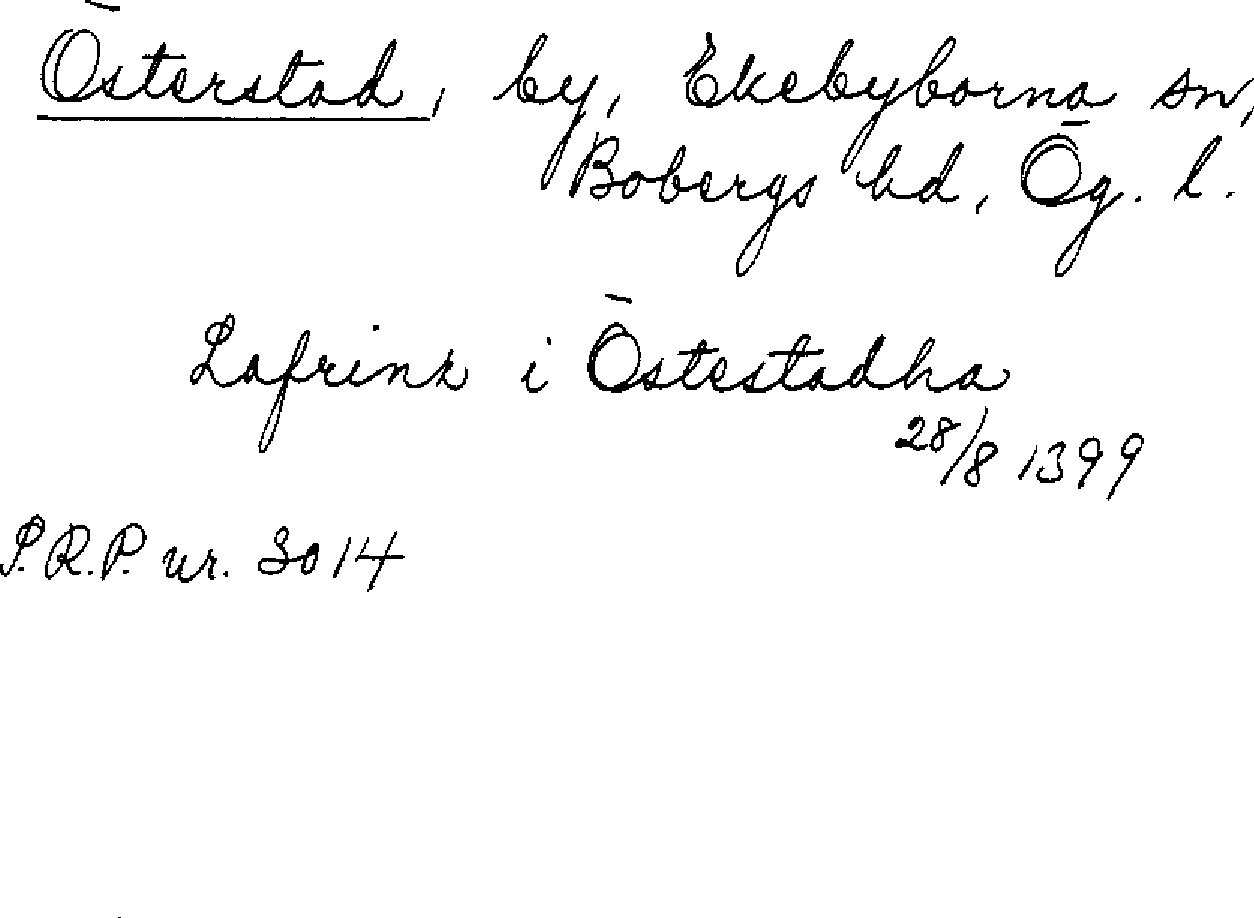 Österstad, by, Ekebyborna sn,
Bobergs hd, Ög. l.
Lafrinz i Östestadha
28/8 1399
S.R.P. nr. 3014